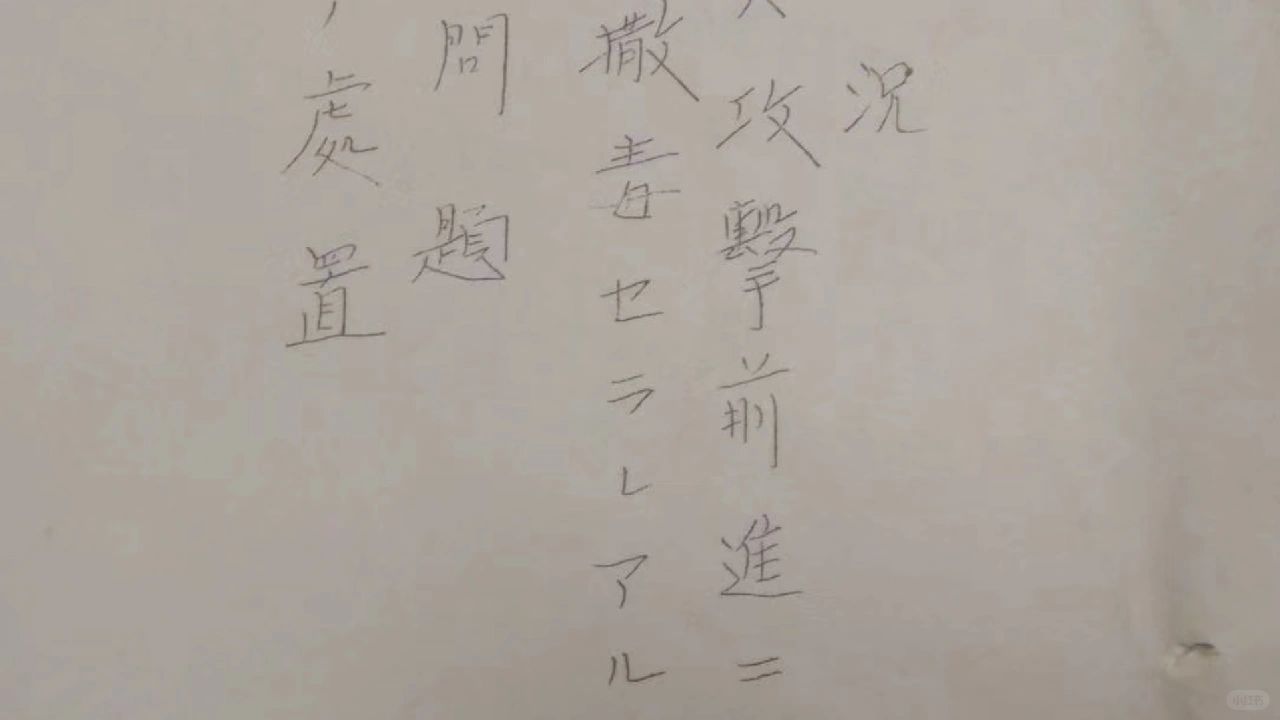 況
攻擊前進ニ
撒毒セラレアル
問題
處置
小红书